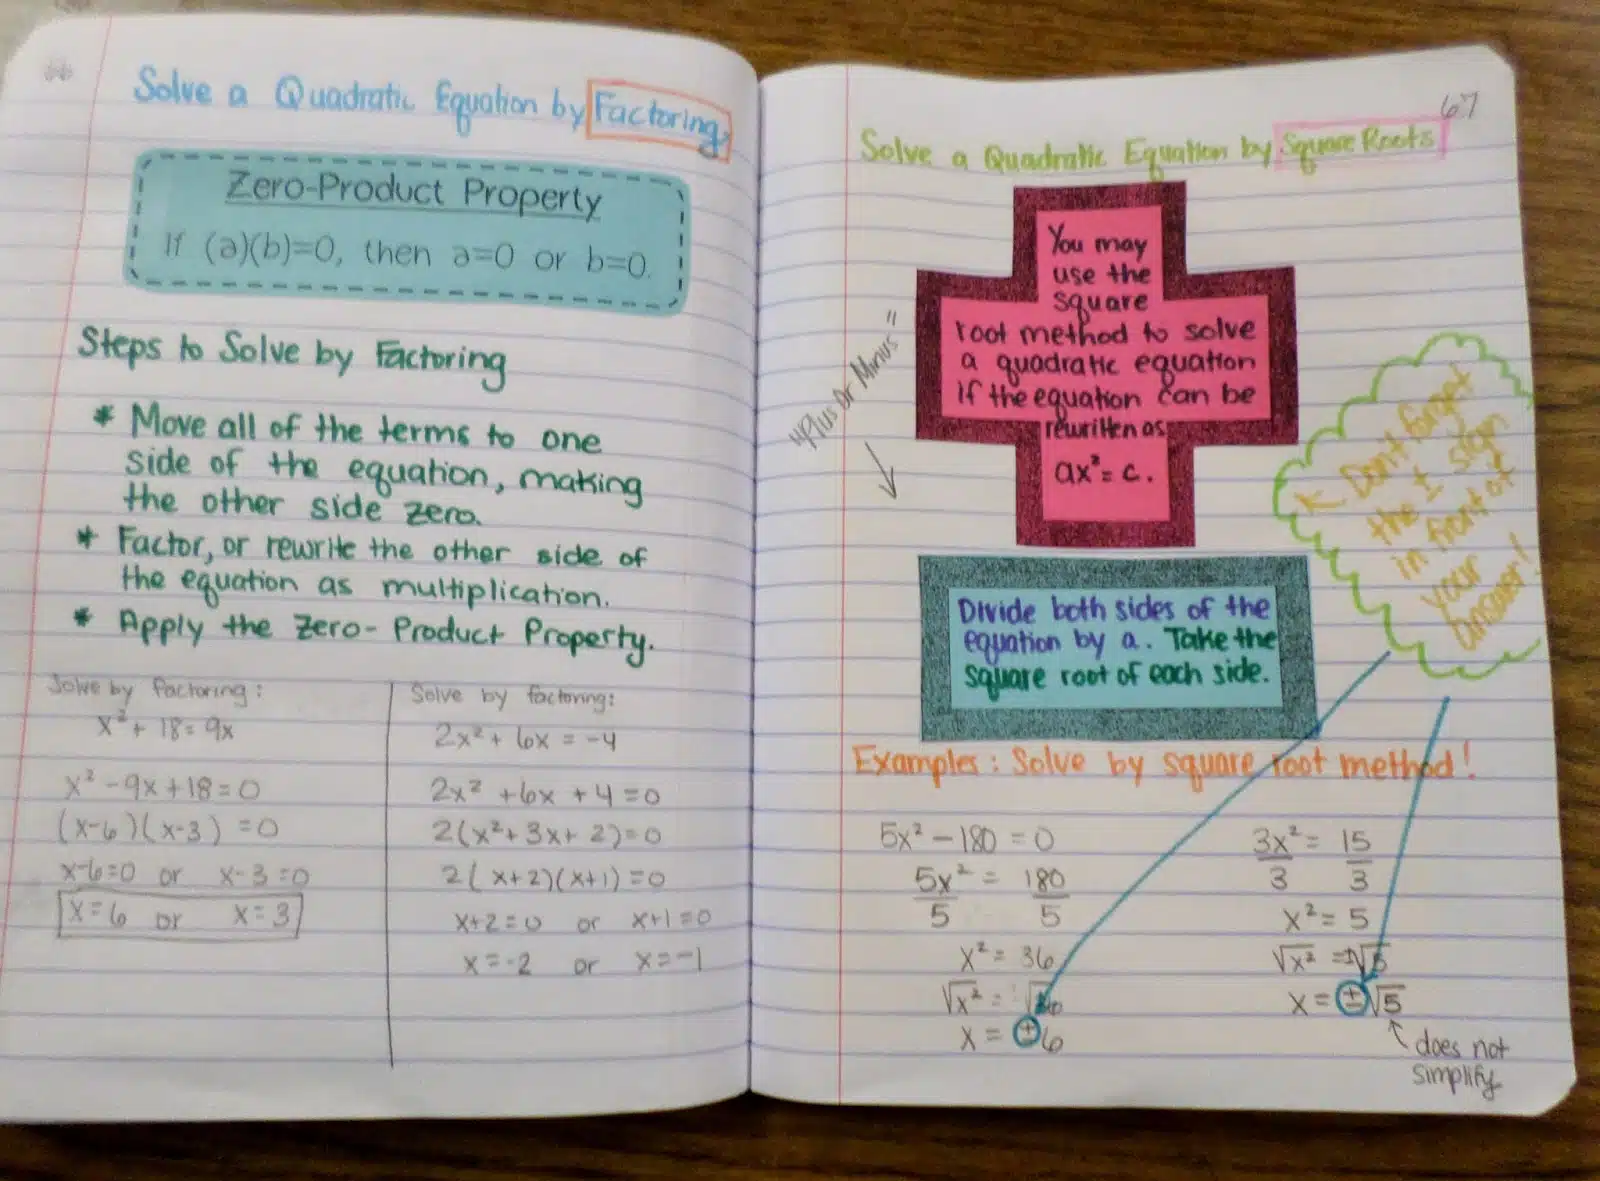 66
Solve a Quadratic Equation by Factoring.
Zero-Product Property
If (a)(b)=0, then a=0 or b=0.
Steps to Solve by Factoring
* Move all of the terms to one
side of the equation, making
the other side zero.
* Factor, or rewrite the other side of
the equation as multiplication.
* Apply the Zero-Product Property.
Solve by factoring:
x² + 18 = 9x
x² - 9x + 18 = 0
(x-6)(x-3) = 0
x-6=0 or x-3=0
x=6 or x=3
Solve by factoring:
2x² + 6x = -4
2x² + 6x + 4 = 0
2(x² + 3x + 2) = 0
2(x+2)(x+1) = 0
x+2=0 or x+1=0
x=-2 or x=-1
67
Solve a Quadratic Equation by Square Roots
You may
use the
square
root method to solve
a quadratic equation
if the equation can be
rewritten as
ax² = c.
"Plus Or Minus"
* Don't forget
the ± sign
in front of
your
answer!
Divide both sides of the
equation by a. Take the
square root of each side.
Examples: Solve by square root method!
5x² - 180 = 0
5x² = 180
5 5
x² = 36
√x² = √36
x = ±6
3x² = 15
3 3
x² = 5
√x² = ±√5
x = ±√5
does not
simplify